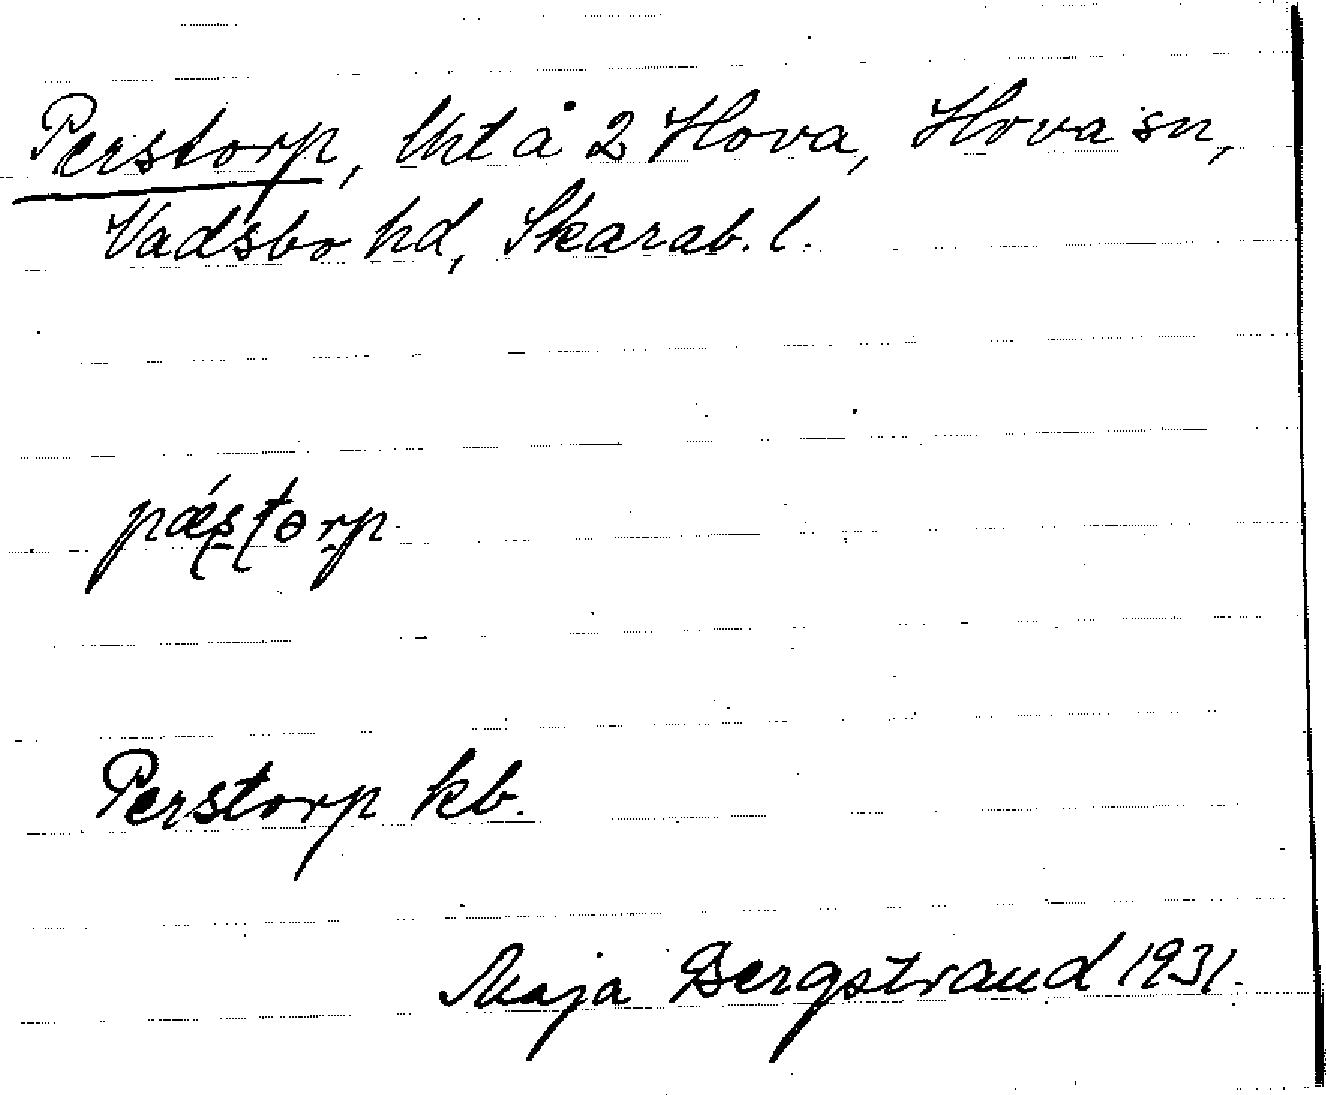 Perstorp, lht å 2 Hova, Hova sn,
Vadsbo hd, Skarab. l.
Perstorp kb.
Maja Bergstrand 1931.